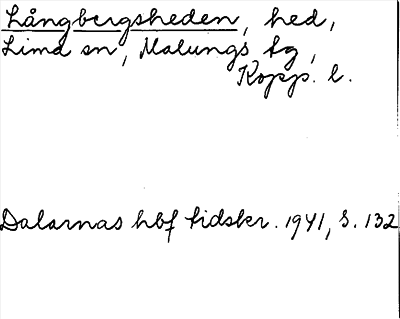 Långbergsheden, hed,
Lima sn, Malungs tg,
Kopp. l.
Dalarnas hbf tidskr. 1941, s. 132